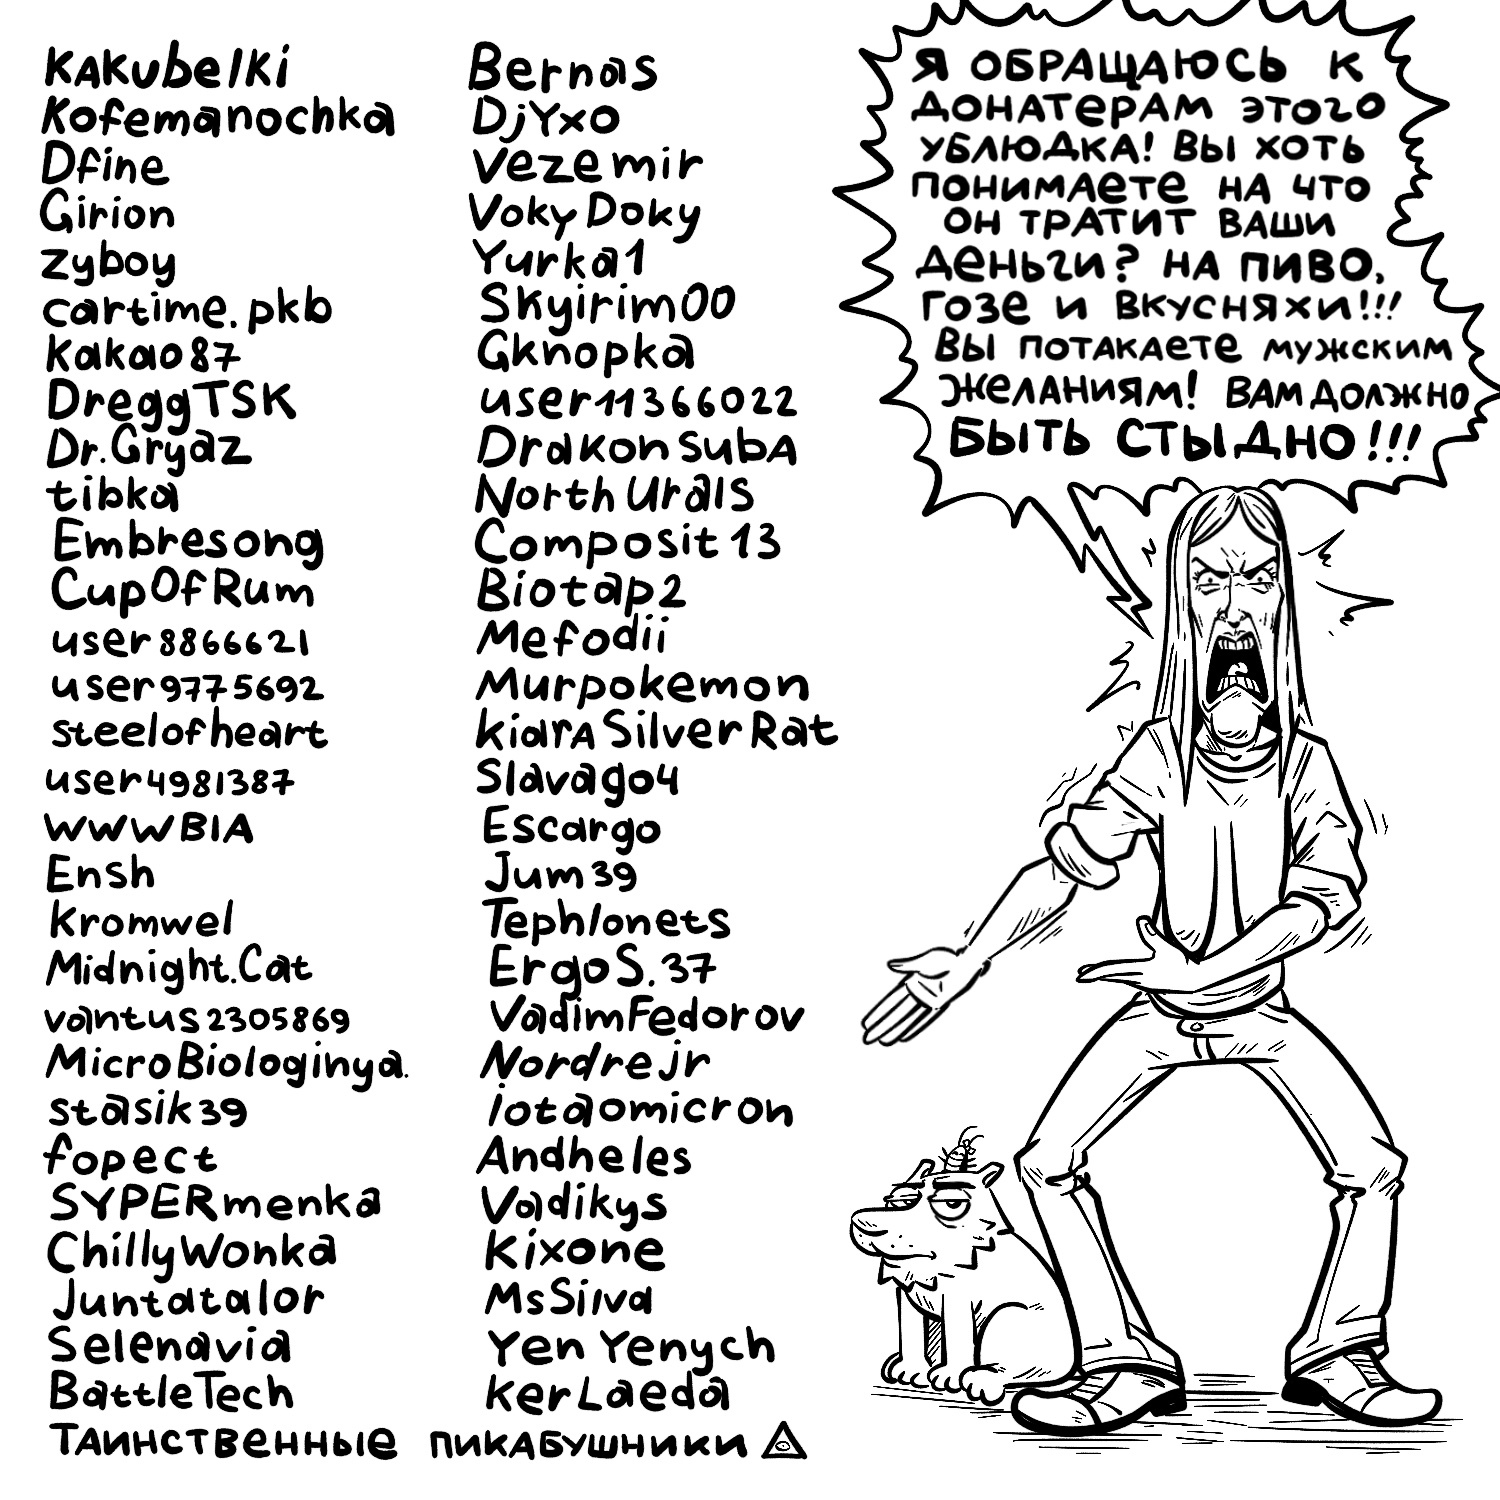 KAKubelki
Kofemanochka
Dfine
Girion
zyboy
cartime.pkb
kakao87
DreggTSK
Dr.Gryaz
tibka
Embresong
CupOfRum
user8866621
user9775692
steelofheart
user4981387
WWWBIA
Ensh
Kromwel
Midnight.Cat
vantus2305869
MicroBiologinya.
stasik39
fopect
SYPERmenka
ChillyWonka
Juntatalor
Selenavia
BattleTech
Bernas
DjYxo
Vezemir
VokyDoky
Yurka1
Skyirim00
Gknopka
user11366022
DrakonSubA
NorthUralS
Composit13
Biotap2
Mefodii
Murpokemon
kiarASilverRat
Slavago4
Escargo
Jum39
Tephlonets
ErgoS.37
VadimFedorov
Nordrejr
iotaomicron
Andheles
Vadikys
Kixone
MsSilva
YenYenych
kerLaeda
Таинственные пикабушники
Я ОБРАЩАЮСЬ К
ДОНАТЕРАМ ЭТОГО
УБЛЮДКА! ВЫ ХОТЬ
ПОНИМАЕТЕ НА ЧТО
ОН ТРАТИТ ВАШИ
ДЕНЬГИ? НА ПИВО,
ГОЗЕ И ВКУСНЯХИ!!!
ВЫ ПОТАКАЕТЕ МУЖСКИМ
ЖЕЛАНИЯМ! ВАМ ДОЛЖНО
БЫТЬ СТЫДНО!!!